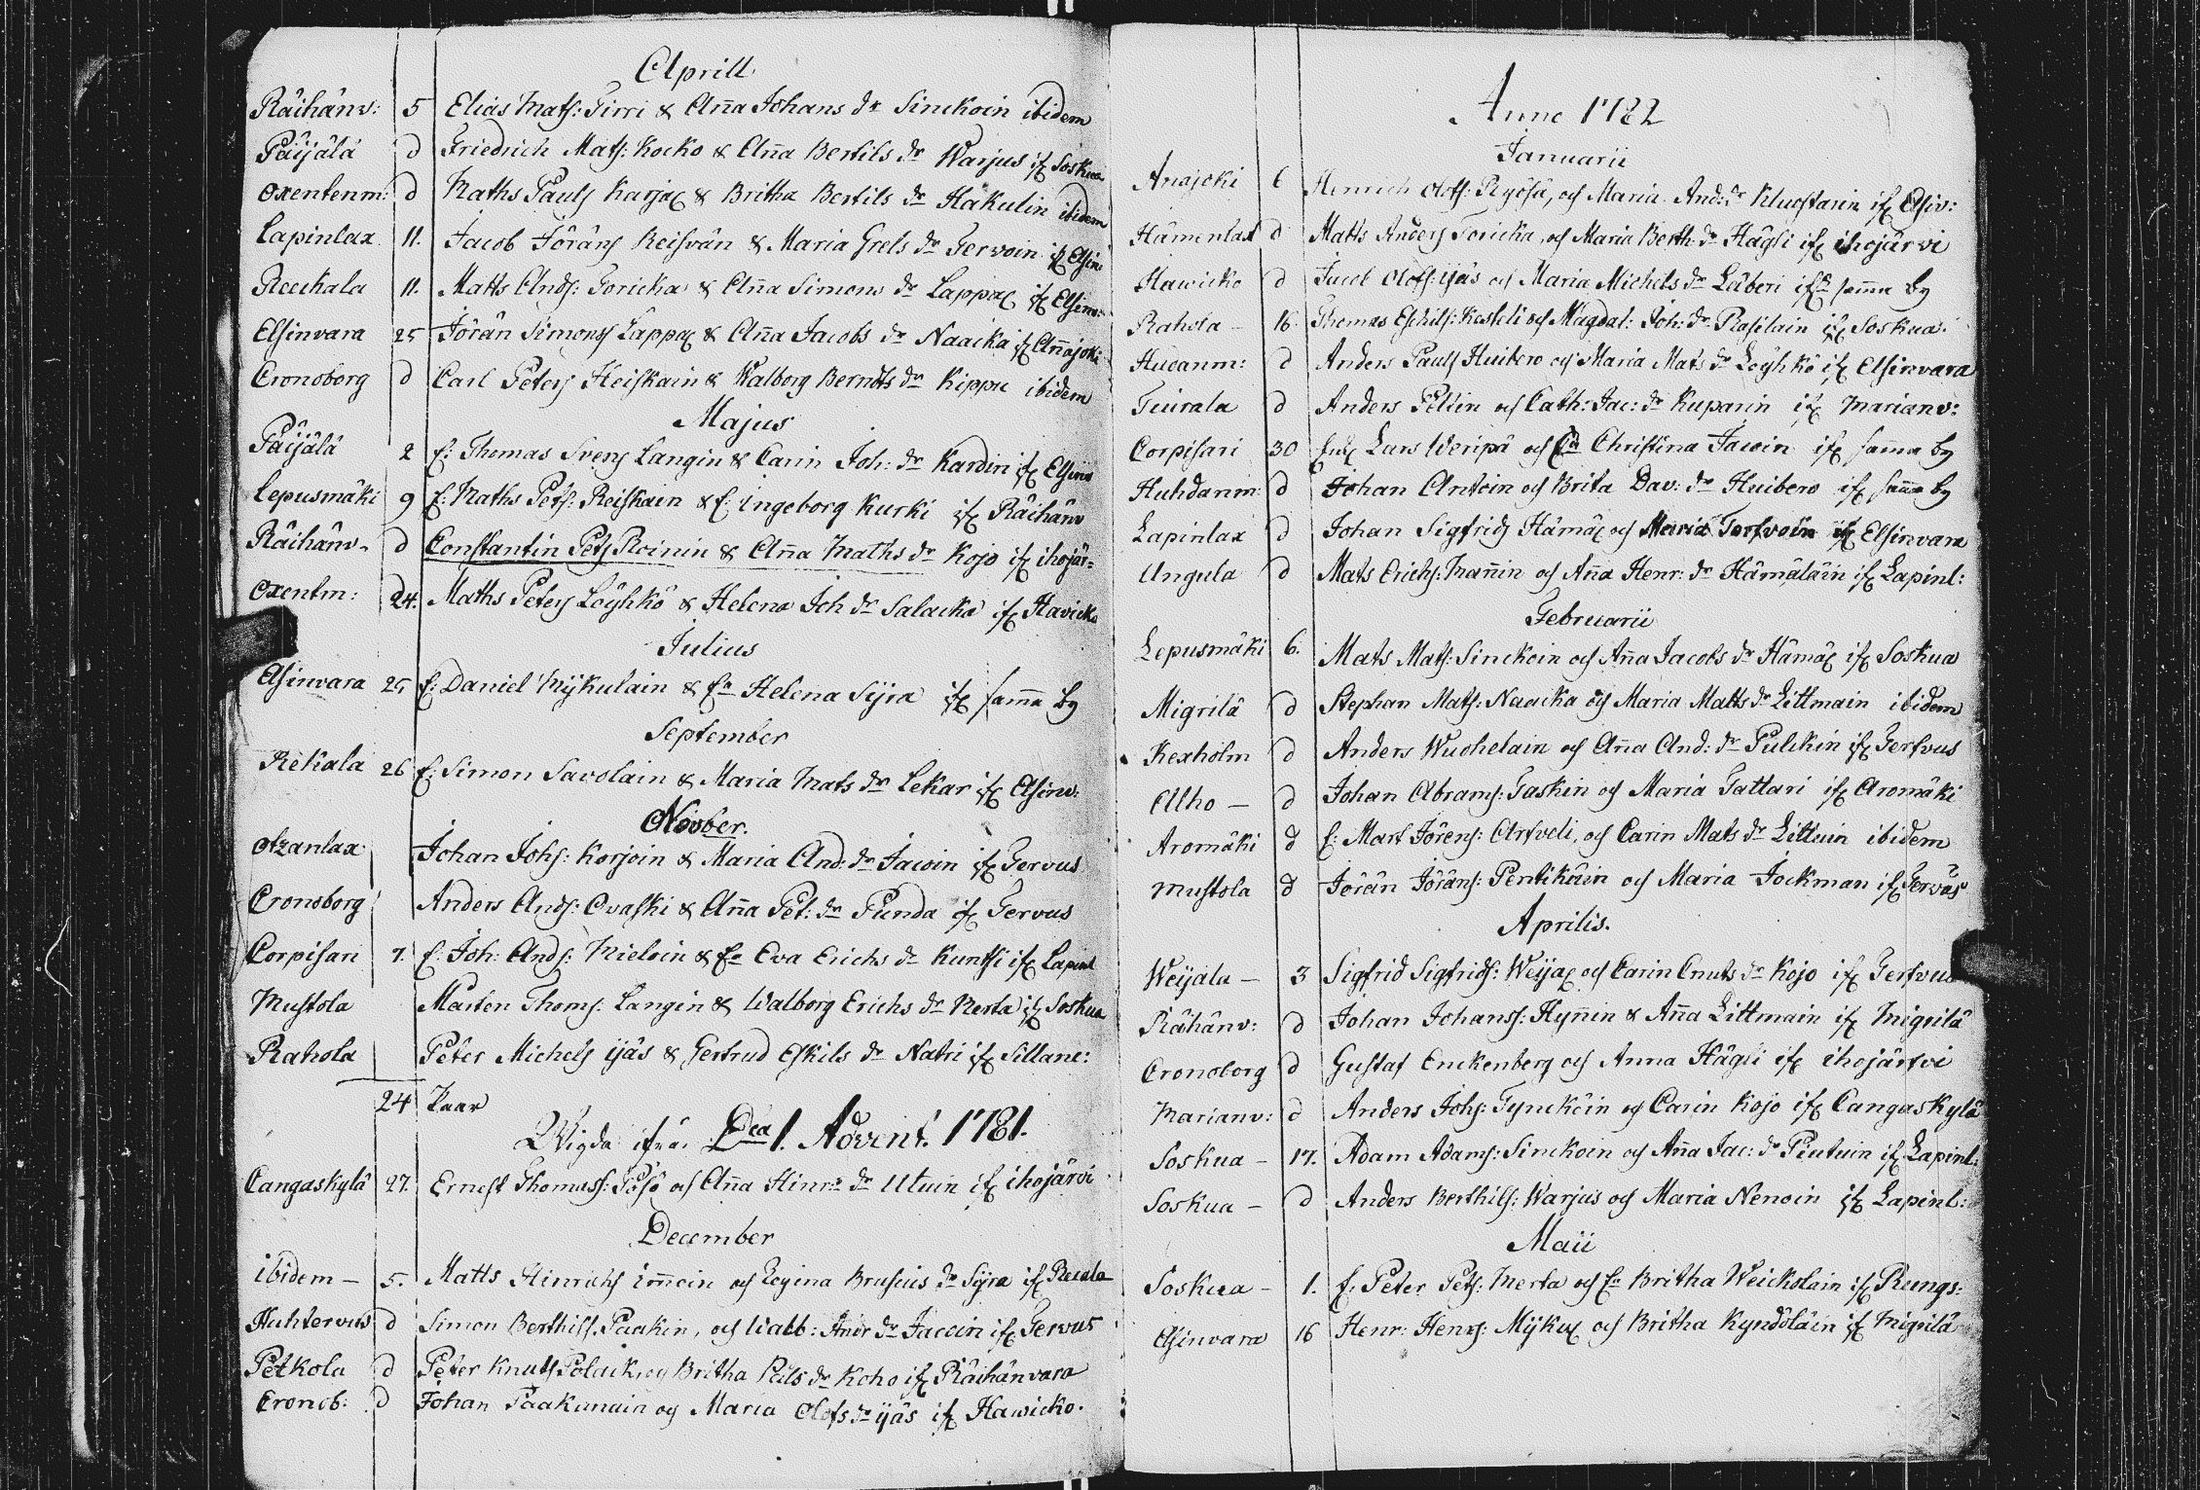 Aprill
Räihänv: 5 Elias Mats: Tirri & Aña Johans dr Sinckoin ibidem
Päijälä d Friedrich Mats: Kocko & Aña Bertils dr Warjus if Soskua
Oxentenm: d Maths Pauls Karjax & Britha Bertils dr Hakulin ibidem
Lapinlax 11. Jacob Jörans Reisvän & Maria Grels dr Tervoin if Elsin:
Reckala 11. Matts Ands: Toricka & Aña Simons dr Lappax if Elsinv:
Elsinvara 25 Jörän Simons Lappax & Aña Jacobs dr Naacka if Añajoki
Cronoborg d Carl Peters Heiskain & Walborg Berndts dr Kippu ibidem
Majus
Päijälä 2 E: Thomas Svens Langin & Carin Joh: dr Kardin if Elsinv
Lepusmäki 9 E: Maths Pets: Reiskain & E: Ingeborg Kurki if Räihänv
Räihänv- d Constantin Pets Roinin & Aña Maths dr Kojo if ihojär=
Oxentm: 24. Maths Peters Löyhkö & Helena Joh dr Salacka if Havicko
Julius
Elsinvara 25 E: Daniel Mykulain & Ea Helena Syra if sama by
September
Rekala 26 E: Simon Savolain & Maria Mats dr Lekar if Elsinv:
Novber.
Otzanlax Johan Johs: Korjoin & Maria And: dr Jacoin if Tervus
Cronoborg Anders Ands: Ovaski & Aña Pet: dr Punda if Tervus
Corpisari 7. E: Joh: Ands: Mieloin & Ea Eva Erichs dr Kuntsi if Lapinl
Mustola Marten Thoms: Langin & Walborg Erichs dr Merta if Soskua
Rahola Peter Michels ijäs & Gertrud Eskils dr Natri if Sillane:
24 Paar
Wigde ifrå. Dca 1. Advent. 1781.
Cangaskylä 27. Ernest Thomass: Pösö och Aña Hinrs dr Utuin if ihojärvi
December
ibidem – 5. Matts Hinrichs Imoin och Regina Brusius dr Syra if Recala
Huhtervus d Simon Berthils. Paakin, och Walb: Andr dr Jacoin if Tervus
Petkola d Peter Knuts Polack, och Britha Påls dr Koho if Räihänvara
Cronob: d Johan Paakunain og Maria Olofs dr ijäs if Hawicko.
Anno 1782
Januarii
Anajoki 6 Henrich Olofs: Pyöfä, och Maria And: dr Kluostarin if Elsiv:
Hämenlax d Matts Anders Toricka, och Maria Berth: dr Hägli if ihojärvi
Hawicko d Jacob Olofs: ijäs och Maria Michels dr Läberi ifr sama by
Rahola – 16. Thomas Eskils: Kasseli och Magdal: Joh: dr Rasilain if Soskua.
Huoanm: d Anders Pauls Huibero och Maria Mats dr Löyhkö if Elsinvara
Tiurala d Anders Peltin och Cath: Jac: dr Kuparin if Marianv:
Corpisari 30 Lars Weripä och Christina Jacoin if sama by
Huhdanm: d Johan Antoin och Brita Dav: dr Huibero if sama by
Lapinlax d Johan Sigfrids Hämäx och Maria Terfvoin if Elsinvara
Ungula d Mats Erichs: Mañin och Aña Henr: dr Hämäläin if Lapinl:
Februarii
Lepusmäki 6. Mats Mats: Sinckoin och Aña Jacobs dr Hämäx if Soskua
Migrilä d Stephan Mats: Naacka och Maria Matts dr Littmain ibidem
Kexholm d Anders Wuohelain och Aña And: dr Pulckin if Terfvus
Alho – d Johan Abrams: Taskin och Maria Tattari if Aromäki
Aromäki d E: Mart Jörens: Artveli, och Carin Mats dr Littuin ibidem
Mustola d Jörän Jöräns: Pentikäin och Maria Jockman if Tervus
Aprilis.
Weijala – 3 Sigfrid Sigfrids: Weijax och Carin Cnuts dr Kojo if Terfvus
Räihänv: d Johan Johanss: Hyñin & Aña Littmain if Migrilä
Cronoborg d Gustaf Enckenberg och Anna Hägli if ihojärfvi
Marianv: d Anders Johs: Tynckäin og Carin Kojo if Cangaskylä
Soskua – 17. Adam Adams: Sinckoin och Aña Jac: dr Piutuin if Lapinl:
Soskua – d Anders Berthils: Warjus och Maria Nenoin if Lapinl:
Maii
Soskua – 1. E: Peter Pets: Merta och Ea Britha Weickolain if Rungs:
Elsinvara 16 Henr: Henrs: Mykux och Britha Kyndöläin if Migrilä